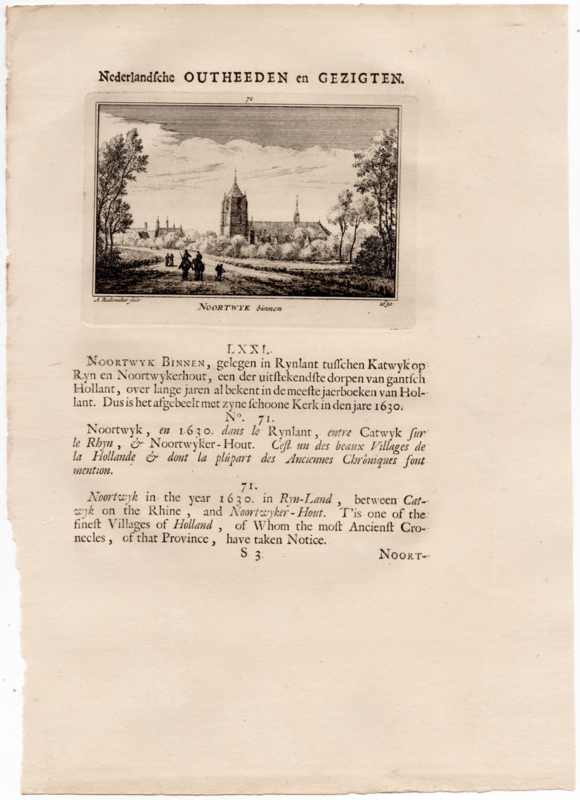 Nederlandſche OUTHEEDEN en GEZIGTEN.
71
A. Rademaker fecit
NOORTWYK binnen
1630
LXXI.
NOORTWYK BINNEN, gelegen in Rynlant tuſſchen Katwyk op
Ryn en Noortwykerhout, een der uitſtekendſte dorpen van gantſch
Hollant, over lange jaren al bekent in de meeſte jaerboeken van Hol-
lant. Dus is het afgebeelt met zyne ſchoone Kerk in den jare 1630.
Nº. 71.
Noortwyk, en 1630. dans le Rynlant, entre Catwyk ſur
le Rhyn, & Noortwyker-Hout. C'eſt un des beaux Villages de
la Hollande & dont la plúpart des Anciennes Chrôniques font
mention.
71.
Noortwyk in the year 1630. in Ryn-Land, between Cat-
wyk on the Rhine, and Noortwyker-Hout. T'is one of the
fineſt Villages of Holland, of Whom the moſt Ancienſt Cro-
necles, of that Province, have taken Notice.
S 3
NOORT-